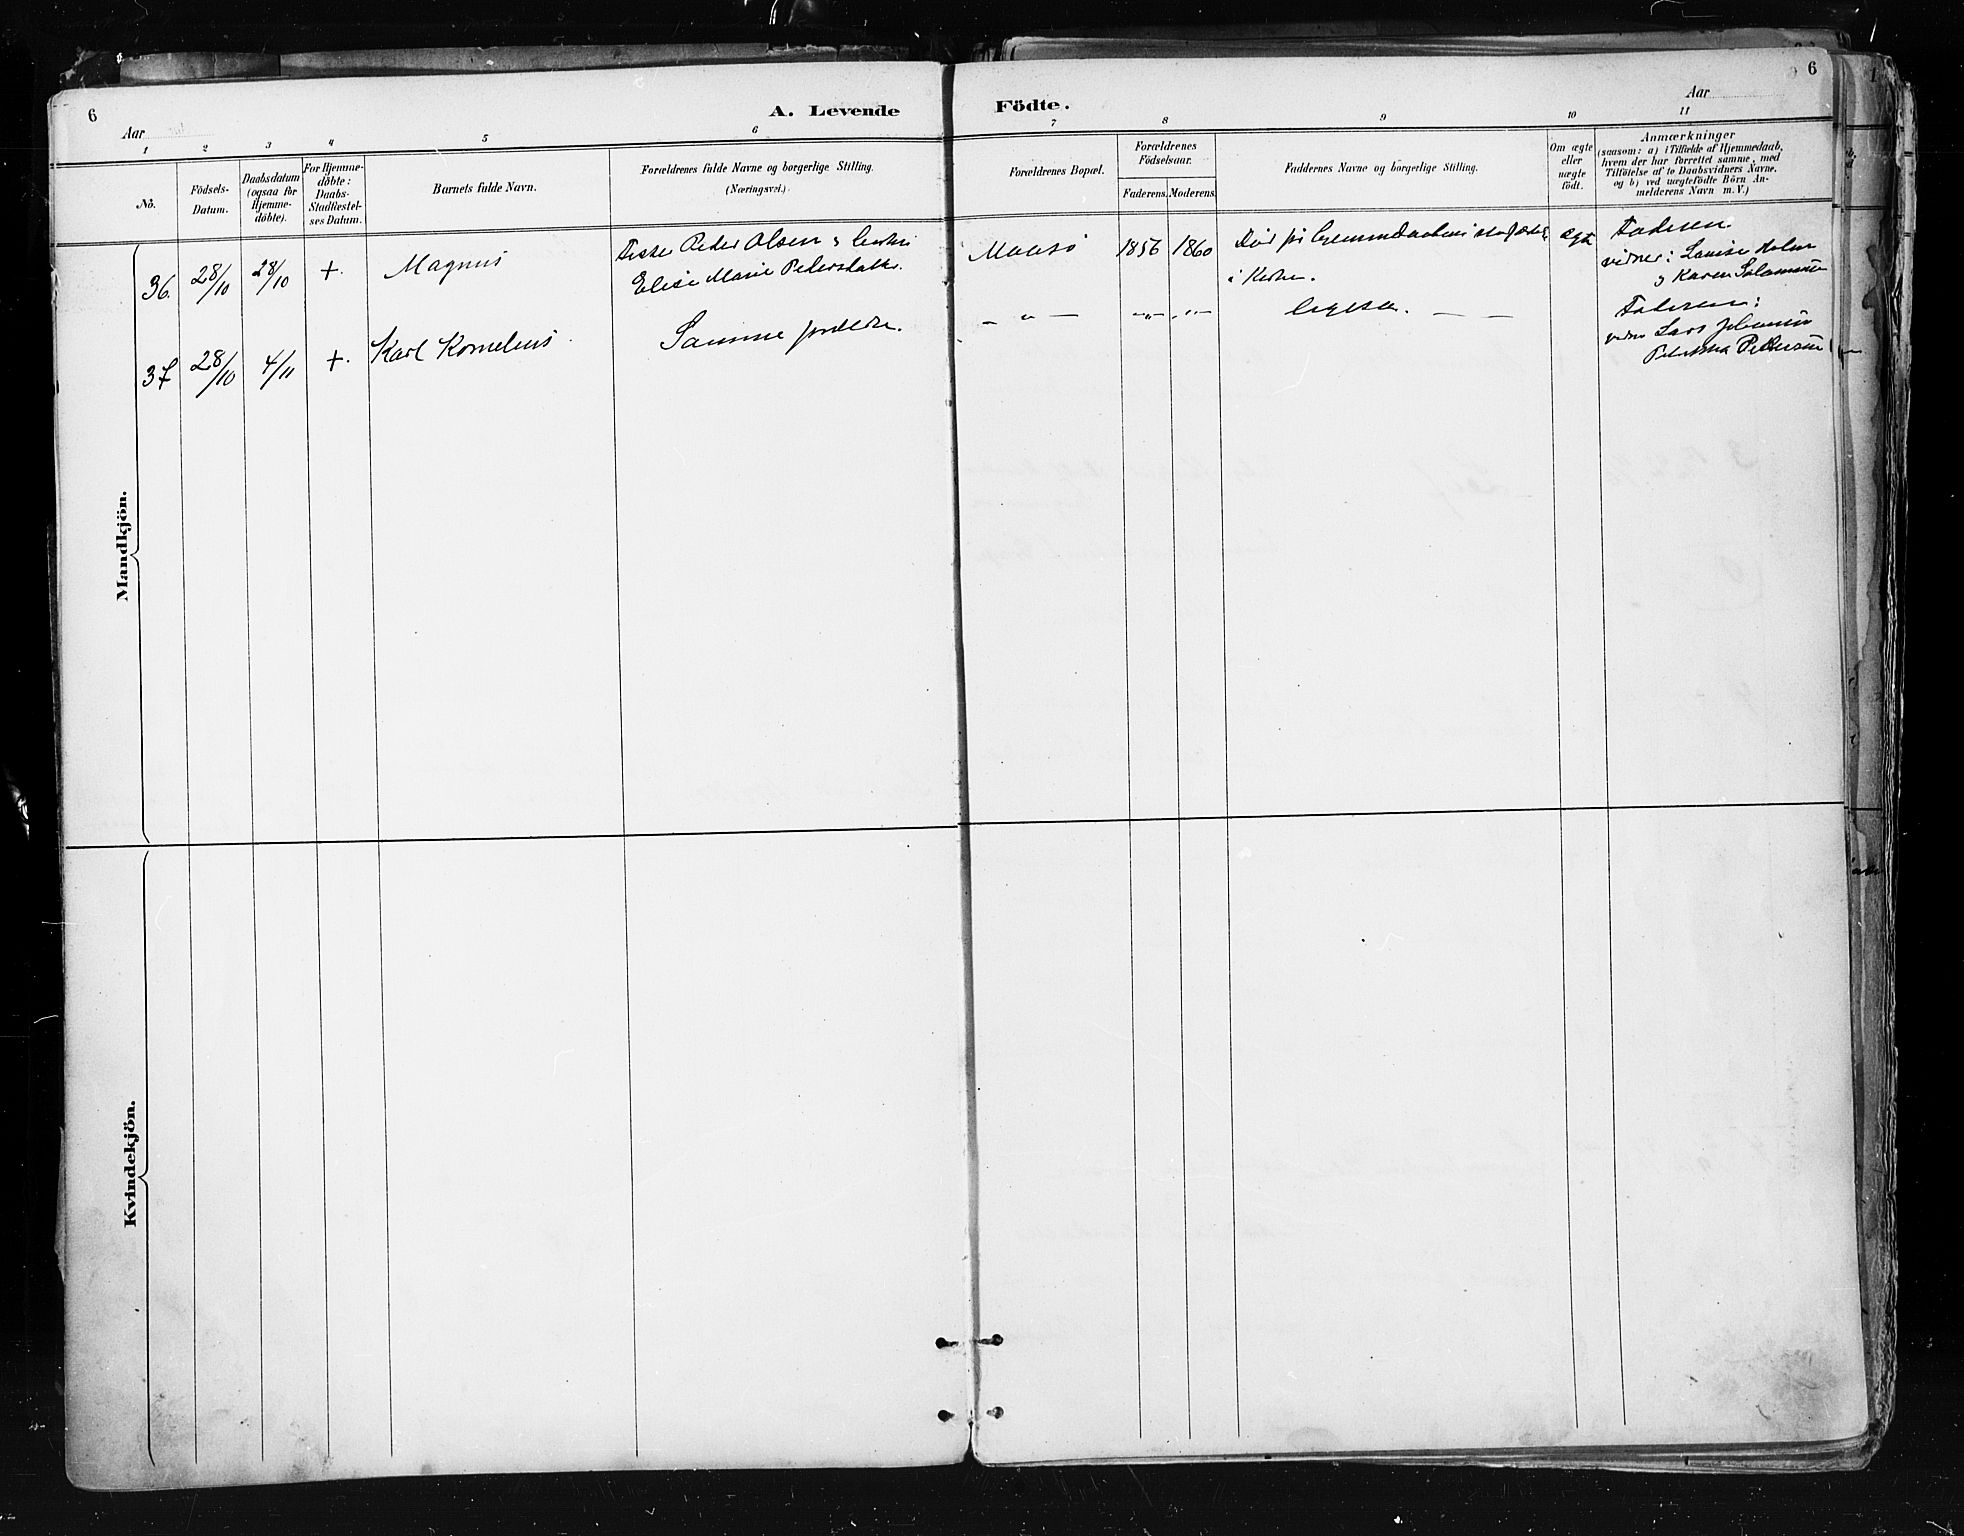 6
A. Levende Födte.
6
Aar
Aar
1 2 3 4 5 6 7 8 9 10 11
No.
Födsels-
Datum.
Daabsdatum
(ogsaa for
Hjemme-
döbte).
For Hjemme-
döbte:
Daabs-
Stadfestel-
ses Datum.
Barnets fulde Navn.
Forældrenes fulde Navne og borgerlige Stilling.
(Næringsvei.)
Forældrenes Bopæl.
Forældrenes
Födselsaar.
Faderens. Moderens.
Faddernes Navne og borgerlige Stilling.
Om ægte
eller
uægte
födt.
Anmærkninger
(saasom: a) i Tilfælde af Hjemmedaab,
hvem der har forrettet samme, med
Tilföielse af to Daabsvidners Navne.
og b) ved uægtefödte Börn An-
melderens Navn m. V.)
Mandkjön.
36. 28/10 28/10 +. Magnus
Fisker Peder Olsen
Elise Marie Pedersdatter.
Maasö 1856 1860
Död før Hjemmedaabens
i Kirken.
ægte
Faderen.
vidner: Louise Holm
Karen Salamonsen
37 28/10 4/11 +. Karl Kornelius
Samme forældre.
— " — —"— —"—
ligesaa. — —
Faderen:
vidner Lars Johansen
Pedersen
Kvindekjön.